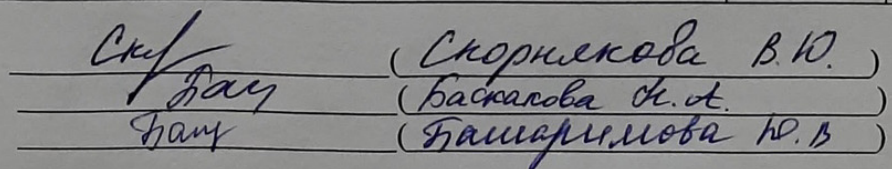 Ск (Скорнякова В.Ю.)
Бац (Баскакова Н.А.)
Баш (Башаримова Ю.В)